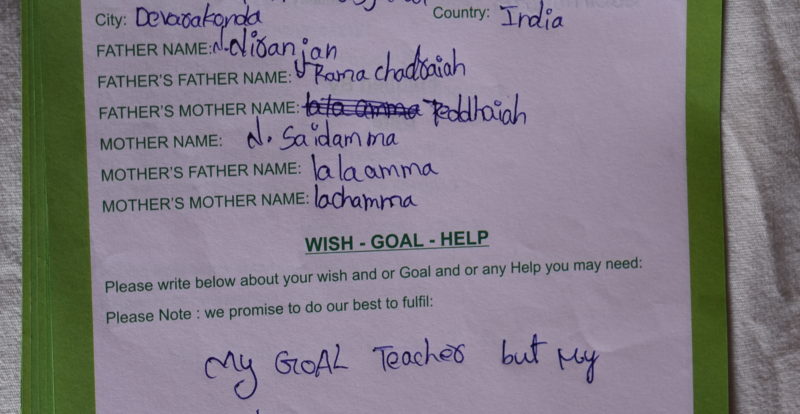 City: Devarakonda Country: India
FATHER NAME: N. Niranjan
FATHER'S FATHER NAME: Rama chadraiah
FATHER'S MOTHER NAME: lala amma Peddhaiah
MOTHER NAME: N. Saidamma
MOTHER'S FATHER NAME: lalaamma
MOTHER'S MOTHER NAME: lachamma
WISH - GOAL - HELP
Please write below about your wish and or Goal and or any Help you may need:
Please Note : we promise to do our best to fulfil:
My GOAL Teacher but My